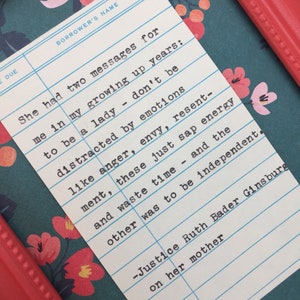 DUE
BORROWER'S NAME
She had two messages for
me in my growing up years:
to be a lady - don't be
distracted by emotions
like anger, envy, resent-
ment, these just sap energy
and waste time - and the
other was to be independent.
-Justice Ruth Bader Ginsburg
on her mother